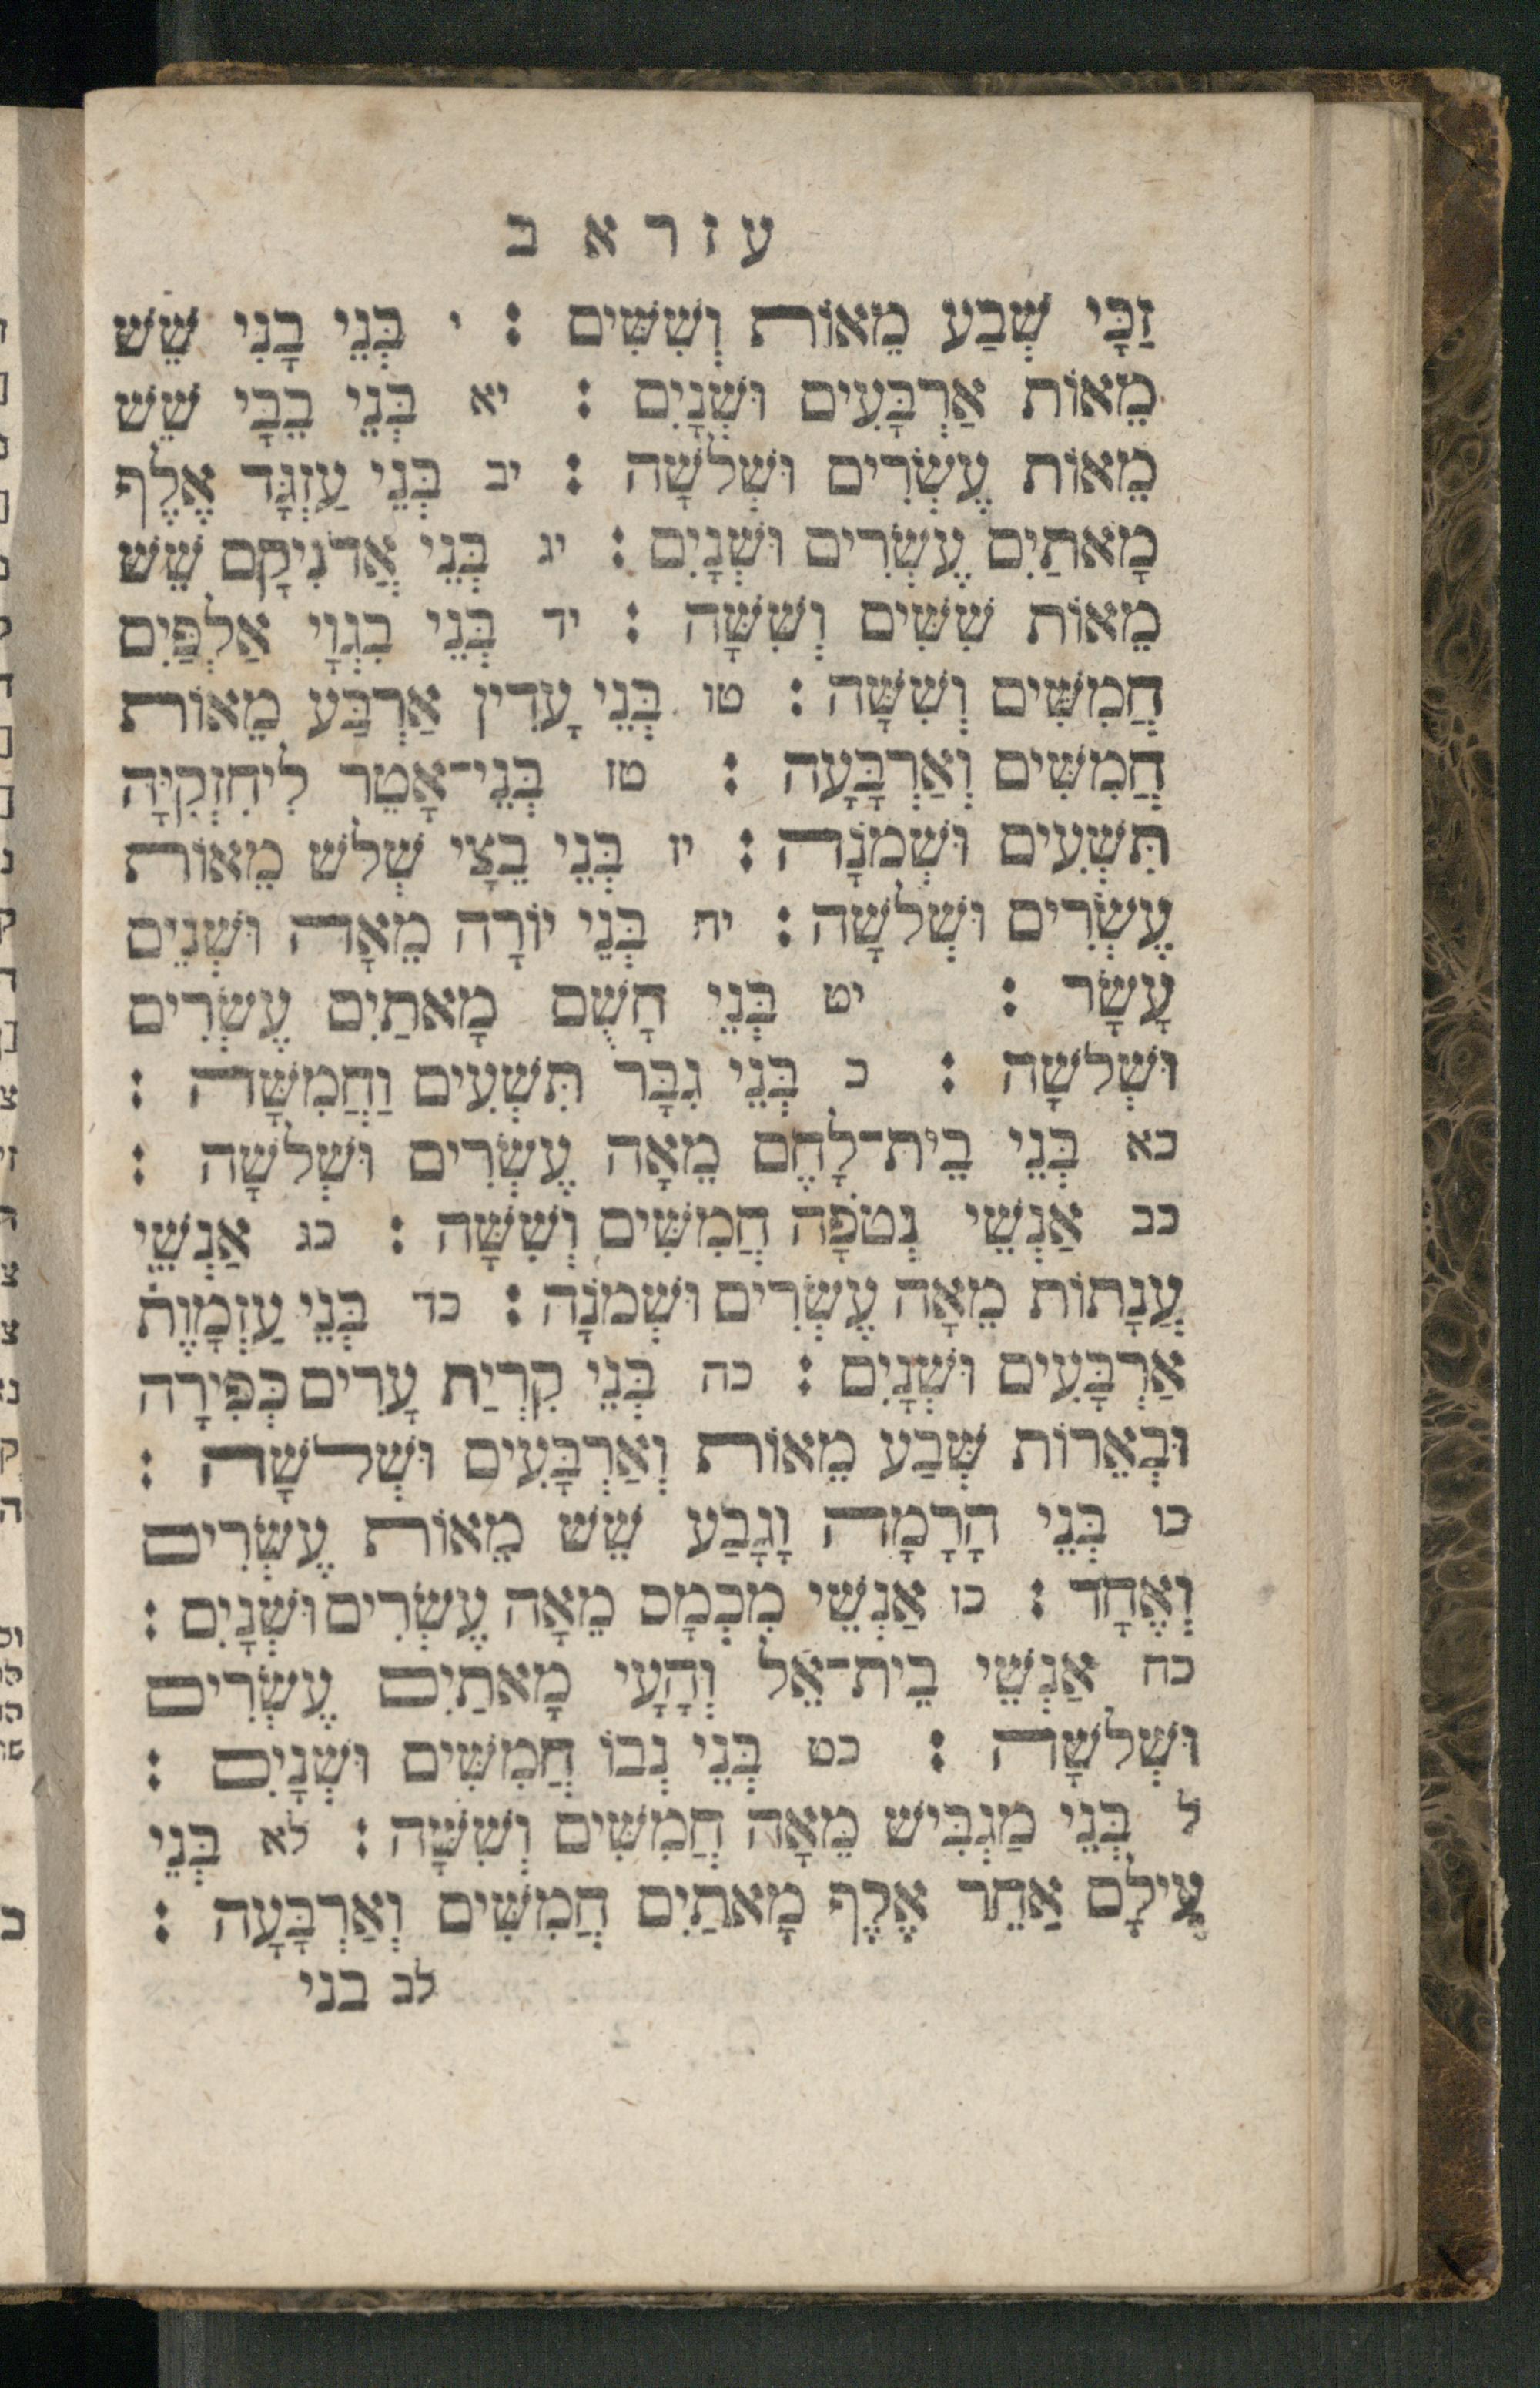 עזרא ב
זַכָּי שְׁבַע מֵאוֹת וְשִׁשִּׁים : י בְּנֵי בָנִי שֵׁשׁ
מֵאוֹת אַרְבָּעִים וּשְׁנָיִם : יא בְּנֵי בֵבָי שֵׁשׁ
מֵאוֹת עֶשְׂרִים וּשְׁלֹשָׁה : יב בְּנֵי עַזְגָּד אֶלֶף
מָאתַיִם עֶשְׂרִים וּשְׁנָיִם : יג בְּנֵי אֲדֹנִיקָם שֵׁשׁ
מֵאוֹת שִׁשִּׁים וְשִׁשָּׁה : יד בְּנֵי בִגְוָי אַלְפַּיִם
חֲמִשִּׁים וְשִׁשָּׁה : טו בְּנֵי עָדִין אַרְבַּע מֵאוֹת
חֲמִשִּׁים וְאַרְבָּעָה : טז בְּנֵי־אָטֵר לִיחִזְקִיָּה
תִּשְׁעִים וּשְׁמֹנָה : יז בְּנֵי בֵצָי שְׁלֹשׁ מֵאוֹת
עֶשְׂרִים וּשְׁלֹשָׁה : יח בְּנֵי יוֹרָה מֵאָה וּשְׁנֵים
עָשָׂר : יט בְּנֵי חָשֻׁם מָאתַיִם עֶשְׂרִים
וּשְׁלֹשָׁה : כ בְּנֵי גִבָּר תִּשְׁעִים וַחֲמִשָּׁה :
כא בְּנֵי בֵית־לָחֶם מֵאָה עֶשְׂרִים וּשְׁלֹשָׁה :
כב אַנְשֵׁי נְטֹפָה חֲמִשִּׁים וְשִׁשָּׁה : כג אַנְשֵׁי
עֲנָתוֹת מֵאָה עֶשְׂרִים וּשְׁמֹנָה : כד בְּנֵי עַזְמָוֶת
אַרְבָּעִים וּשְׁנָיִם : כה בְּנֵי קִרְיַת עָרִים כְּפִירָה
וּבְאֵרוֹת שְׁבַע מֵאוֹת וְאַרְבָּעִים וּשְׁלֹשָׁה :
כו בְּנֵי הָרָמָה וָגָבַע שֵׁשׁ מֵאוֹת עֶשְׂרִים
וְאֶחָד : כז אַנְשֵׁי מִכְמָס מֵאָה עֶשְׂרִים וּשְׁנָיִם :
כח אַנְשֵׁי בֵית־אֵל וְהָעָי מָאתַיִם עֶשְׂרִים
וּשְׁלֹשָׁה : כט בְּנֵי נְבוֹ חֲמִשִּׁים וּשְׁנָיִם :
ל בְּנֵי מַגְבִּישׁ מֵאָה חֲמִשִּׁים וְשִׁשָּׁה : לא בְּנֵי
עֵילָם אַחֵר אֶלֶף מָאתַיִם חֲמִשִּׁים וְאַרְבָּעָה :
לב בני